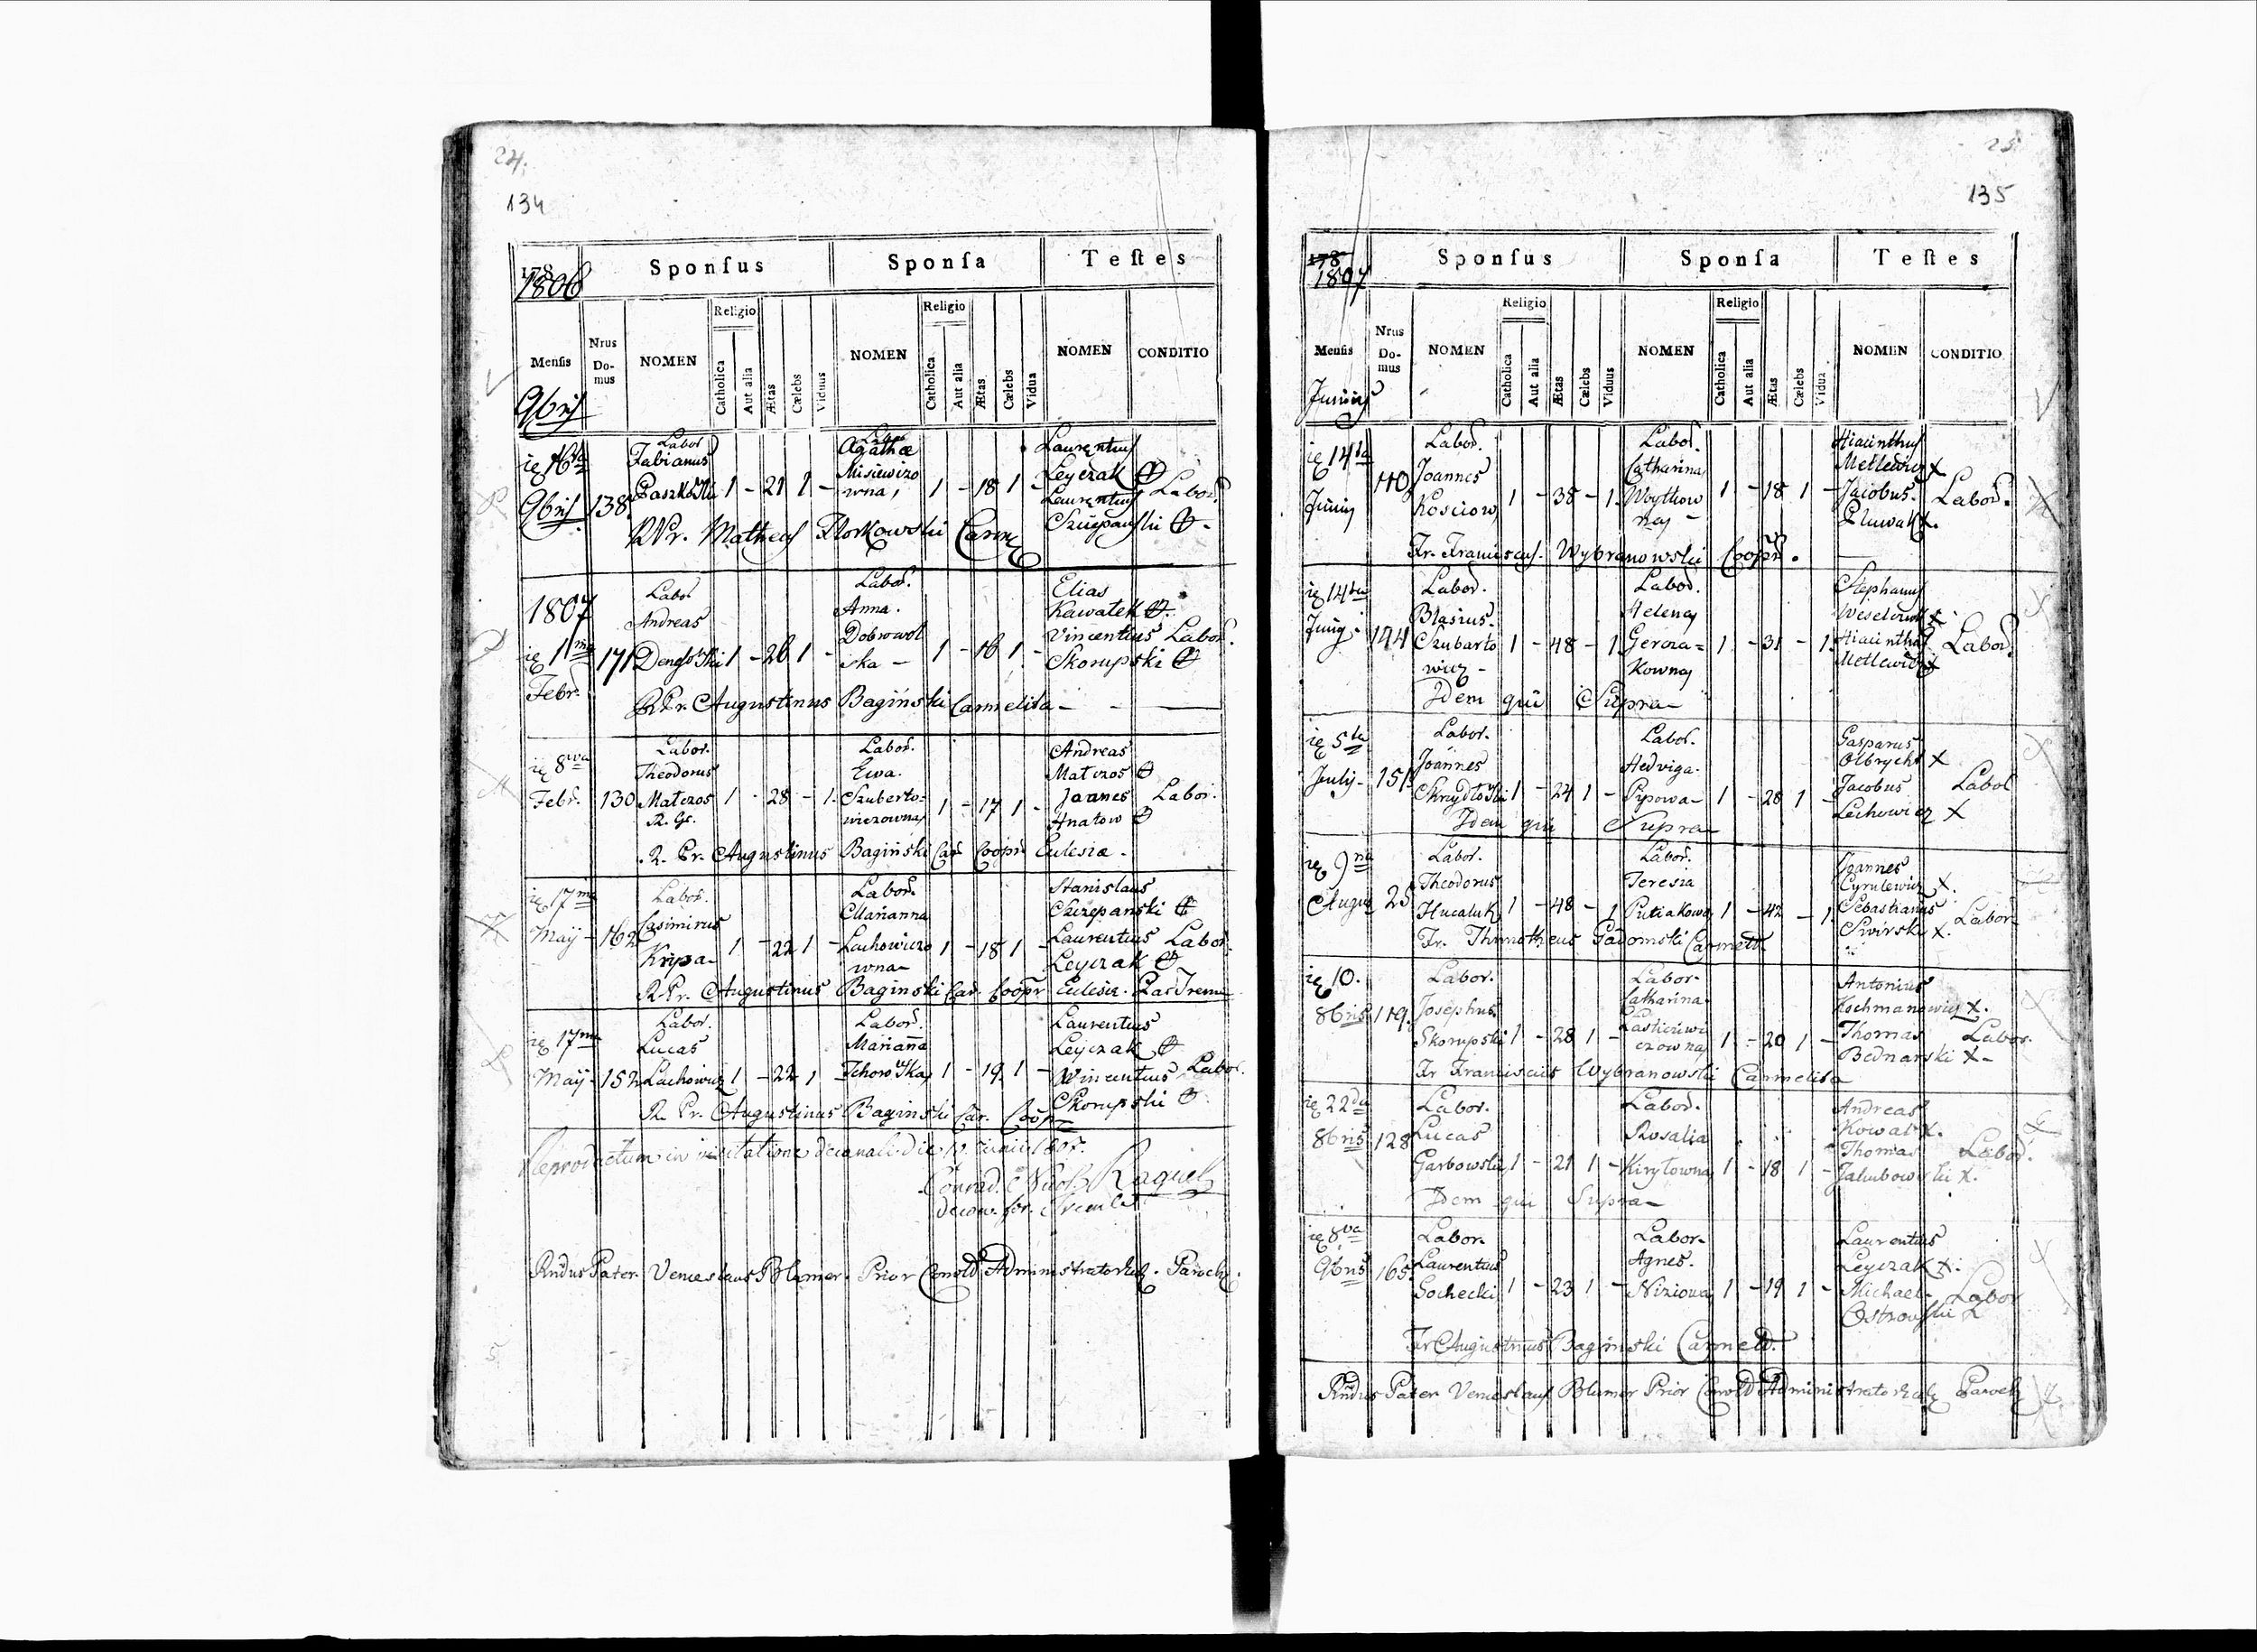 24.
134
178
1806
Sponsus
Sponsa
Testes
Mensis
Nrus Domus
NOMEN
Religio
Catholica
Aut alia
Ætas
Cælebs
Viduus
NOMEN
Religio
Catholica
Aut alia
Ætas
Cælebs
Vidua
NOMEN
CONDITIO
9bris
Labor Labor Laurentius
ie 16ta Fabianus Agatha Leyczak
9bris 138 Paszkowski 1 - 21 1 - Misiewiczo
wna 1 - 18 1 - Laurentius Labor.
Szczepanski
RPr. Matheus Florkowski Carm
1807 Labor Labor. Elias
Andreas Anna. Kawalek
ie 1ma 171 1 - 26 1 - Dobrowol Vincentius Labor.
Febr. ska - 1 - 16 1 - Skorupski
RPr. Augustinus Baginski Carmelita -
ie 8va Labor. Labor. Andreas
Theodorus Ewa. Matczos
Febr. 130 Matczos 1 - 28 - 1. Szuberto= Joanes Labor.
R. Gr. wiczowna 1 - 17 1 - Hnatow
R. Pr. Augustinus Baginski Car. Coopr. Eclesiæ -
ie 17ma Labor. Labor. Stanislaus
Casimirus Marianna Szczepanski
May - 162 1 - 22 1 - Lachowiczo 1 - 18 1 - Laurentius Labor.
Krypa - wna - Leyczak
RPr. Augustinus Baginski Car. Coopr Eclesiæ.
ie 17ma Labor. Labor. Laurentius
Lucas Marianna Leyczak
May - 152 Lachowicz 1 - 22 1 - 1 - 19. 1 - Wincentius Labor.
Skorupski
R. Pr. Augustinus Baginski Car. Coopr
Reproductum in visitatione decanali die Junii 1807.
Conrad. Raquel
Rndus Pater Venceslaus Blumer Prior Administrator Paroch.
25
135
178
1807
Sponsus
Sponsa
Testes
Mensis
Nrus Domus
NOMEN
Religio
Catholica
Aut alia
Ætas
Cælebs
Viduus
NOMEN
Religio
Catholica
Aut alia
Ætas
Cælebs
Vidua
NOMEN
CONDITIO
Junius
ie 14ta Labor. Labor. Hiacinthus
110 Joannes Catharina Metlewicz X
Junij 1 - 38 - 1. Woytkow 1 - 18 1 - Jacobus. Labor.
Kosciow nay -
Fr. Franciscus. Wybranowski Coopr.
ie 14ta Labor. Labor. Stephanus
Blasius. Helena
Junij. 144 Szubarto 1 - 48 - 1 Geroza= 1 - 31 - 1. Hiacinthus Labor.
wicz - kowna Metlewicz X
Idem qui Supra -
ie 5ta Labor. Labor. Gasparus
Joannes Hedviga. Olbrycht X
July - 151 1 - 24 1 - Pysowa - 1 - 28 1 - Jacobus Labor
Lechowicz X
Idem qui Supra
ie 9na Labor. Labor. Joannes
Theodorus Teresia Cyrulewicz X.
Augu 25 Hucaluk 1 - 48 - 1 Putiakowa 1 - 42 - 1. Sebastianus Labor
Swirski X.
Fr. Thimotheus Gadomski Carmelit.
ie 10. Labor. Labor. Antonius
8bris 119. Josephus Catharina. Kochmanowicz X.
Skorupski 1 - 28 1 - 1 - 20 1 - Thomas Labor.
Bednarski X -
Fr Franciscus Wybranowski Carmelita
ie 22da Labor. Labor. Andreas
8bris 128 Lucas Rosalia Kowal X.
Garbowski 1 - 21 1 - Kirylowna 1 - 18 1 - Thomas Labor.
Jakubowski X.
Idem qui Supra -
ie 8va Labor. Labor. Laurentius
9bris 165. Laurentius Agnes. Leyczak X.
Gochecki 1 - 23 1 - Niziowa 1 - 19 1 - Michael - Labor
Ostrowski X
Fr Augustinus Baginski Carmelit.
Rndus Pater Venceslaus Blumer Prior Administrator Paroch